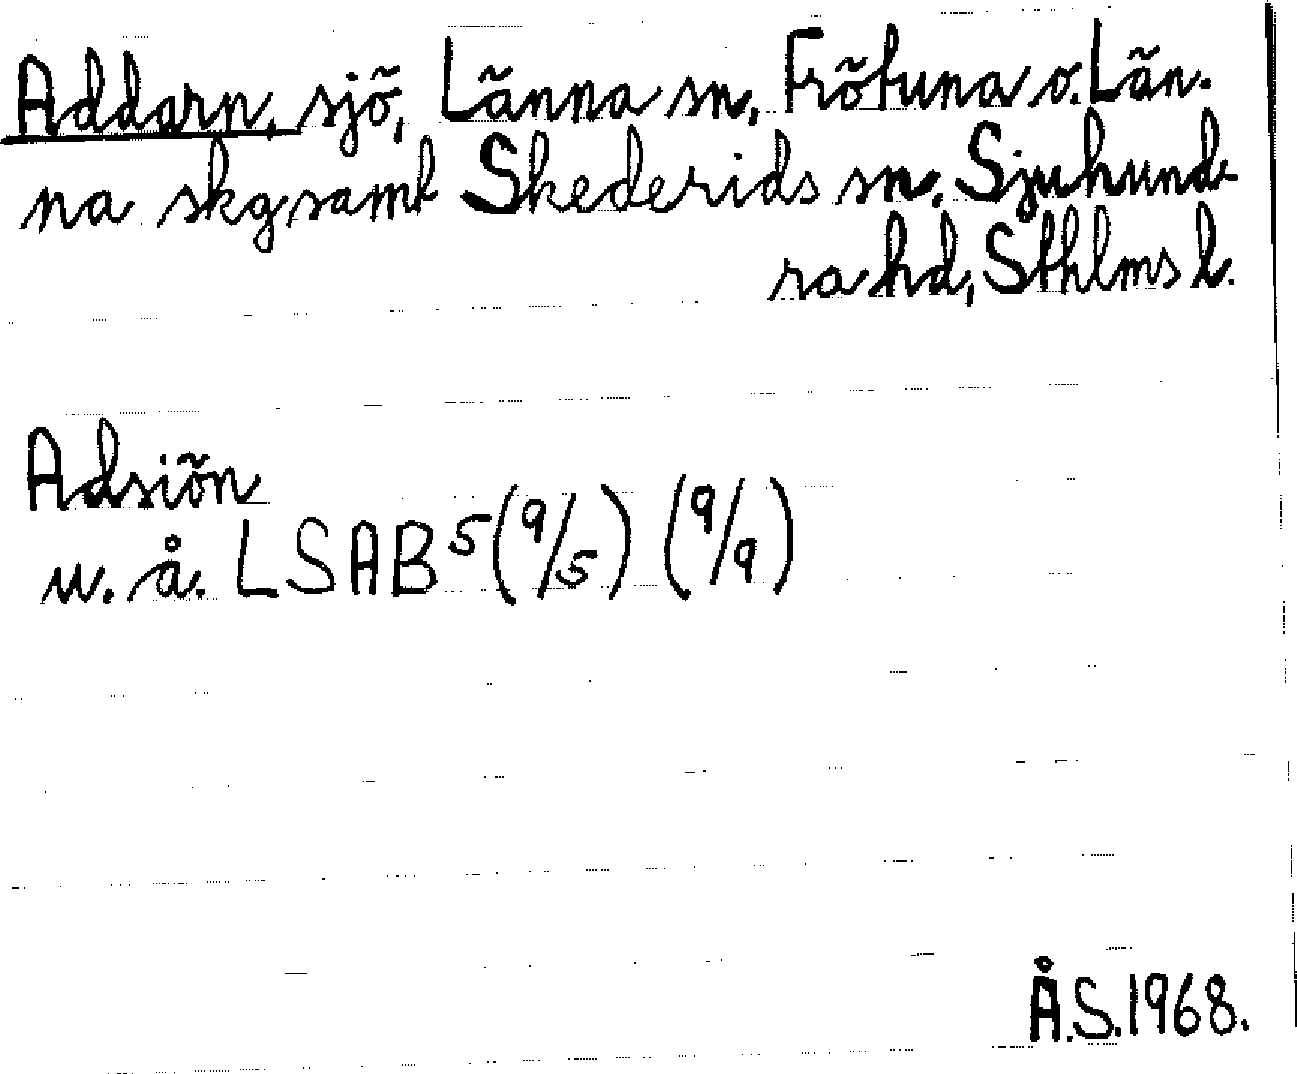 Addarn, sjö, Länna sn, Frötuna o. Län-
na skg samt Skederids sn, Sjuhund-
ra hd, Sthlms l.
Adsiön
u. å. LSA B⁵ (9/5) (9/9)
Å.S. 1968.